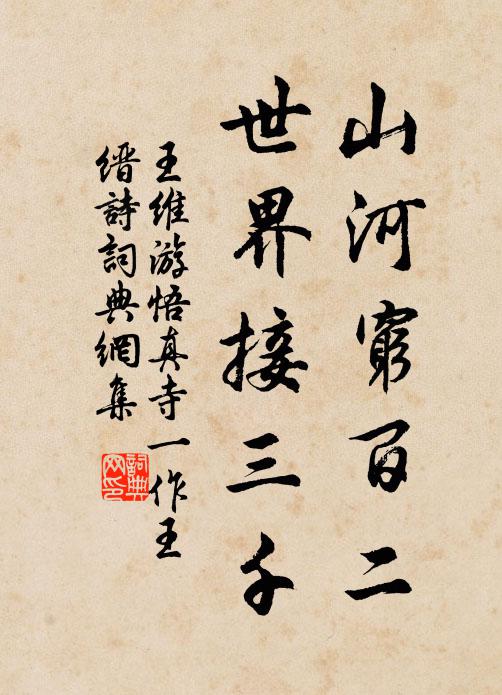 山河窮百二
世界接三千
王維游悟真寺一作王
縉詩詞典網集
詞典
网印